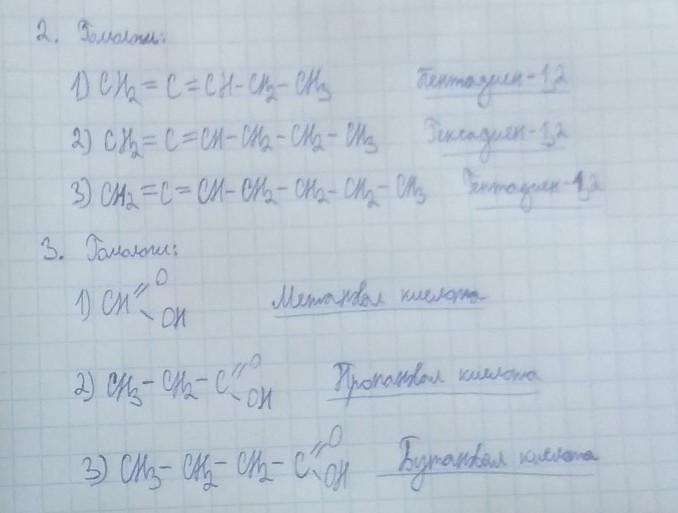 2. Гомологи:
1) CH2=C=CH-CH2-CH3 Пентадиен-1,2
2) CH2=C=CH-CH2-CH2-CH3 Гексадиен-1,2
3) CH2=C=CH-CH2-CH2-CH2-CH3 Гептадиен-1,2
3. Гомологи:
O
1) CH Метановая кислота
OH
O
2) CH3-CH2-C Пропановая кислота
OH
O
3) CH3-CH2-CH2-C Бутановая кислота
OH